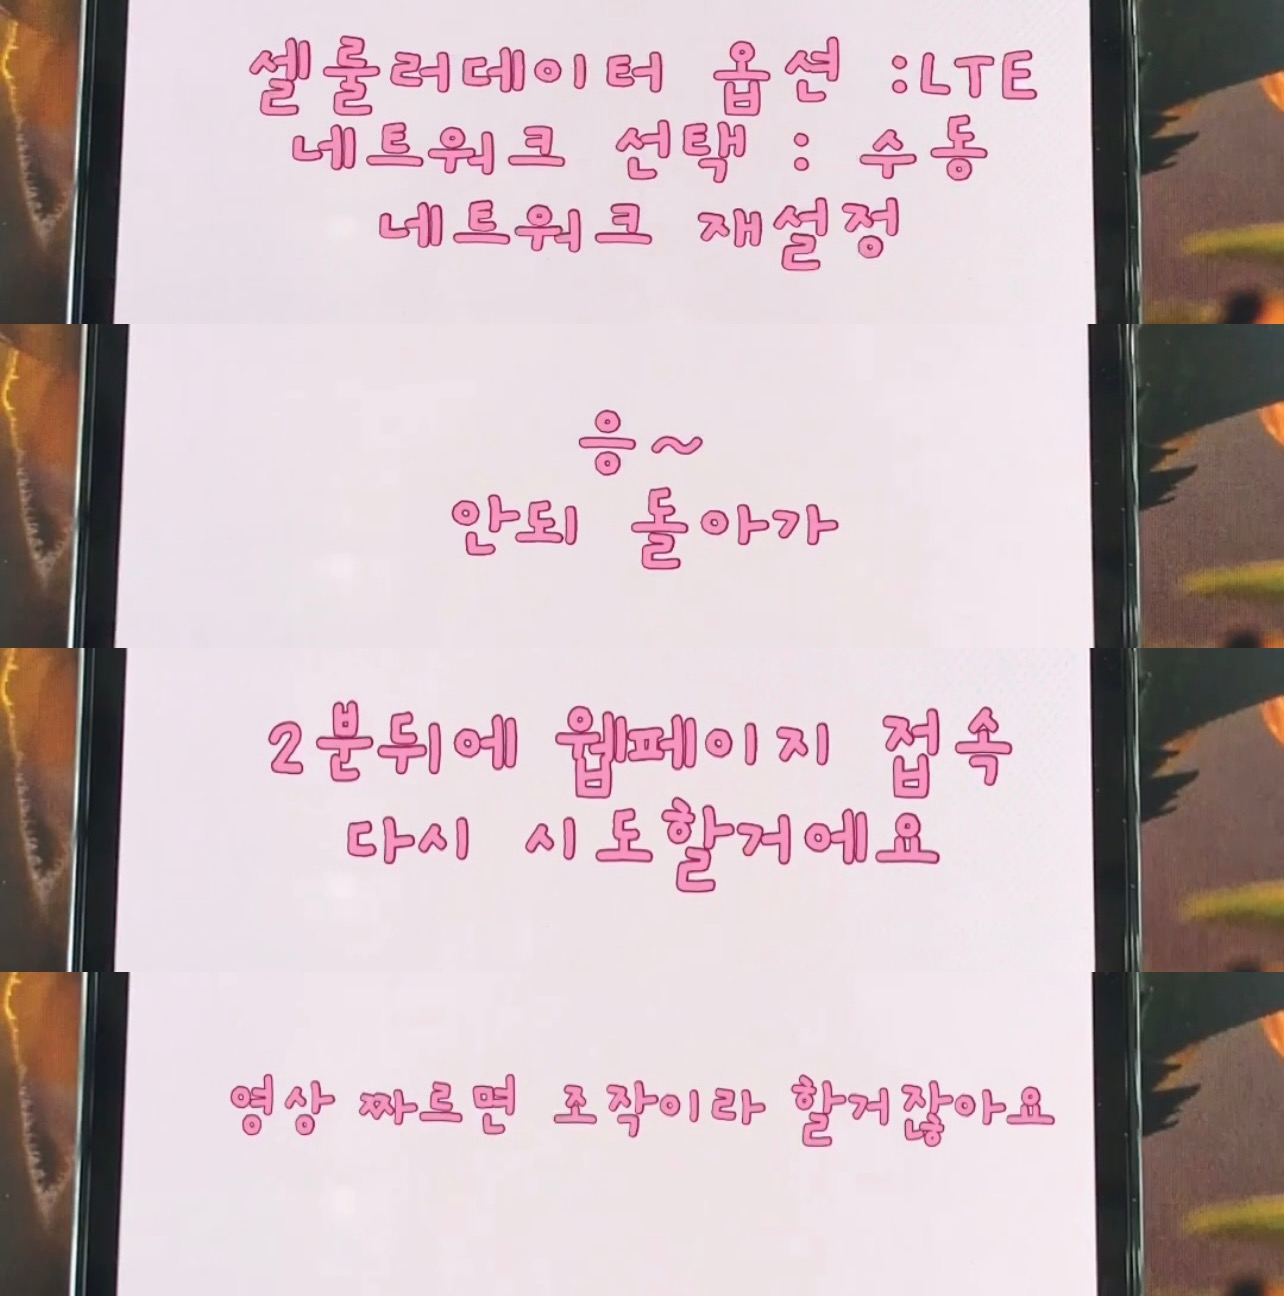 셀룰러데이터 옵션 :LTE
네트워크 선택 : 수동
네트워크 재설정
응~
안되 돌아가
2분뒤에 웹페이지 접속
다시 시도할거에요
영상 짜르면 조작이라 할거잖아요